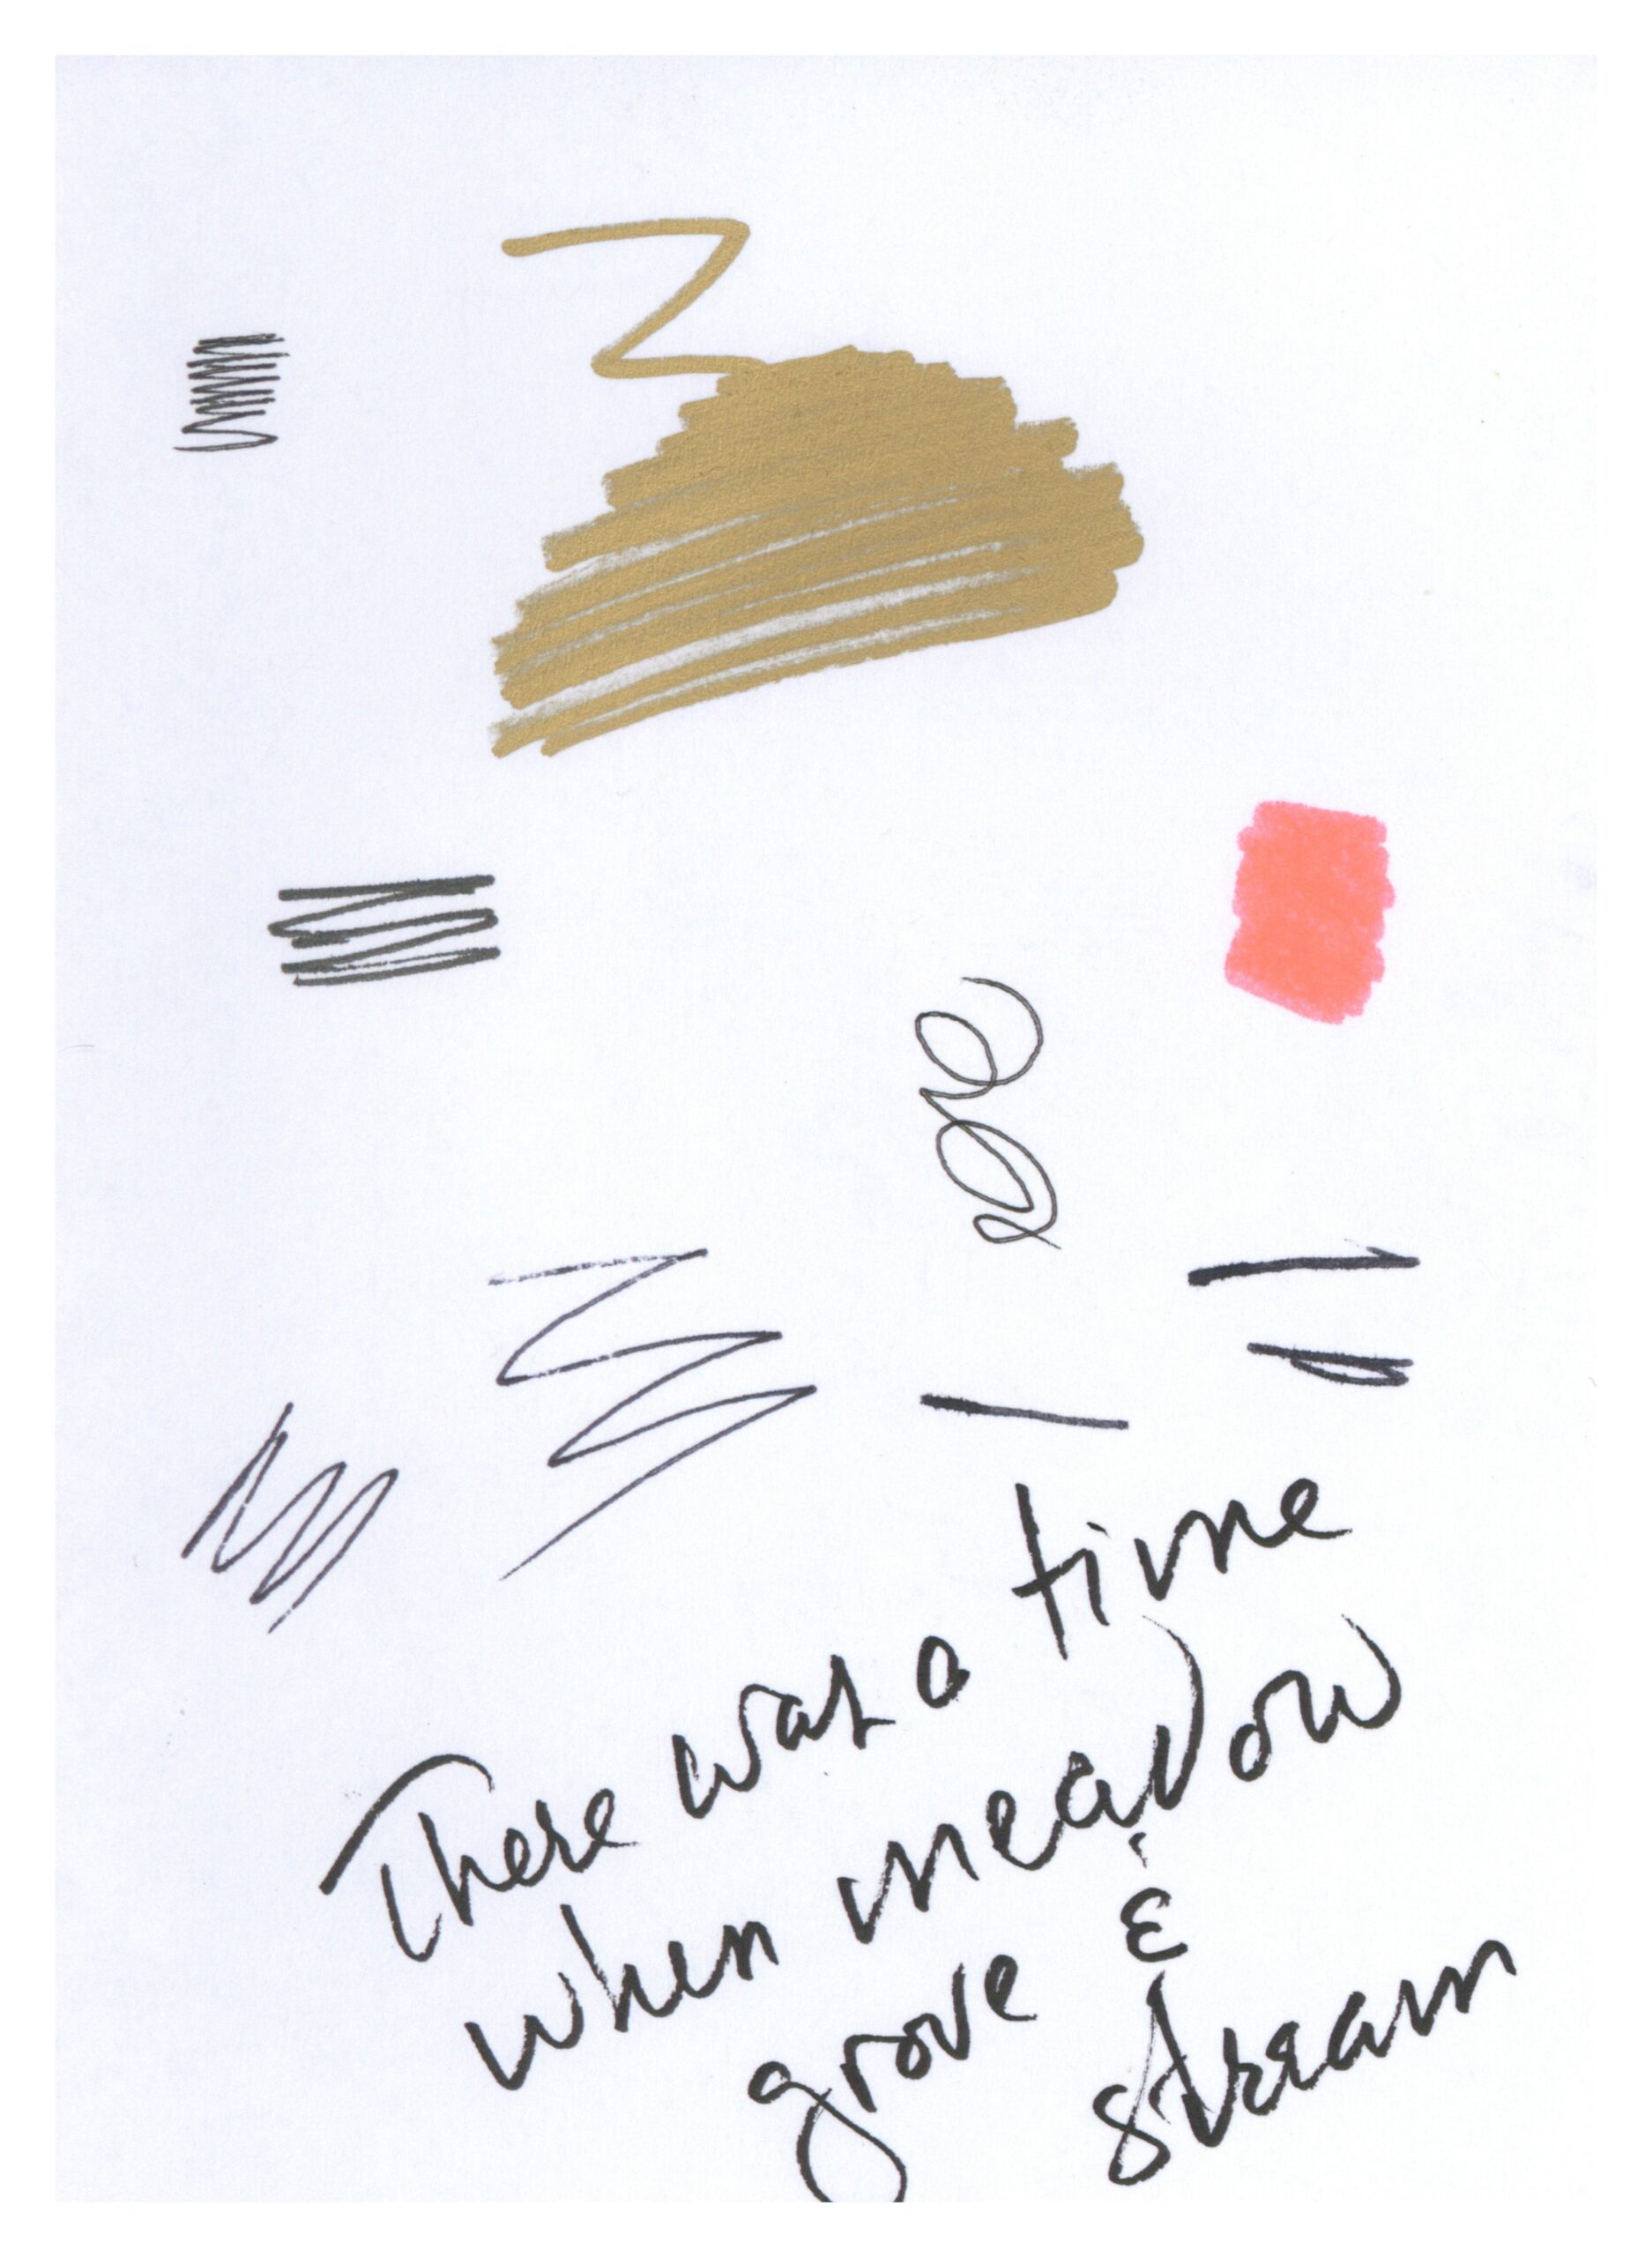 There was a time
when meadow
grove &
stream